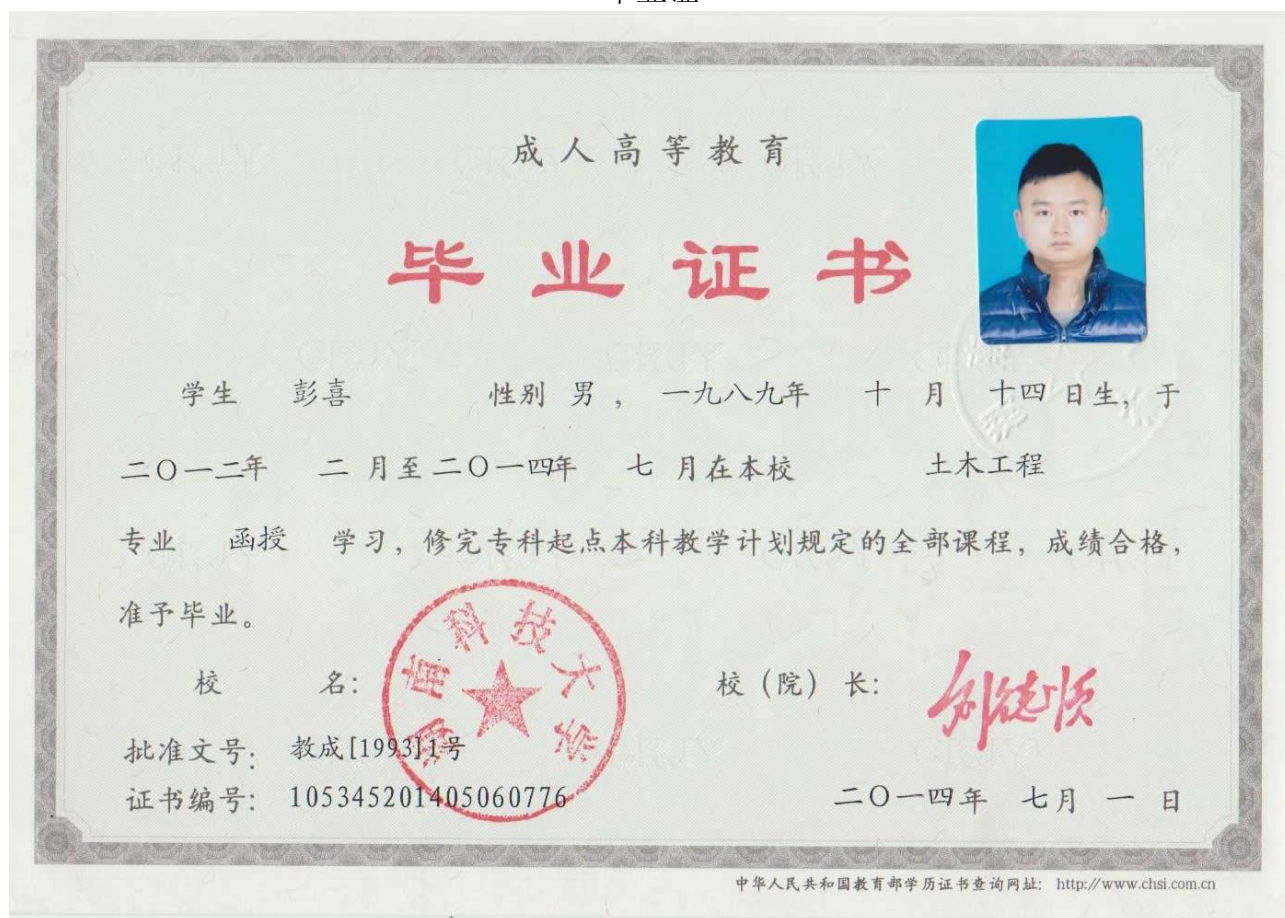 成人高等教育
毕业证书
学生 彭喜 性别 男, 一九八九年 十 月 十四 日生, 于
二〇一二年 二 月至 二〇一四年 七 月在本校 土木工程
专业 函授 学习, 修完专科起点本科教学计划规定的全部课程, 成绩合格,
准予毕业。
湖南科技大学
校 名: 校(院)长:
批准文号: 教成[1993]1号
证书编号: 105345201405060776 二〇一四年 七月 一 日
中华人民共和国教育部学历证书查询网址: http://www.chsi.com.cn